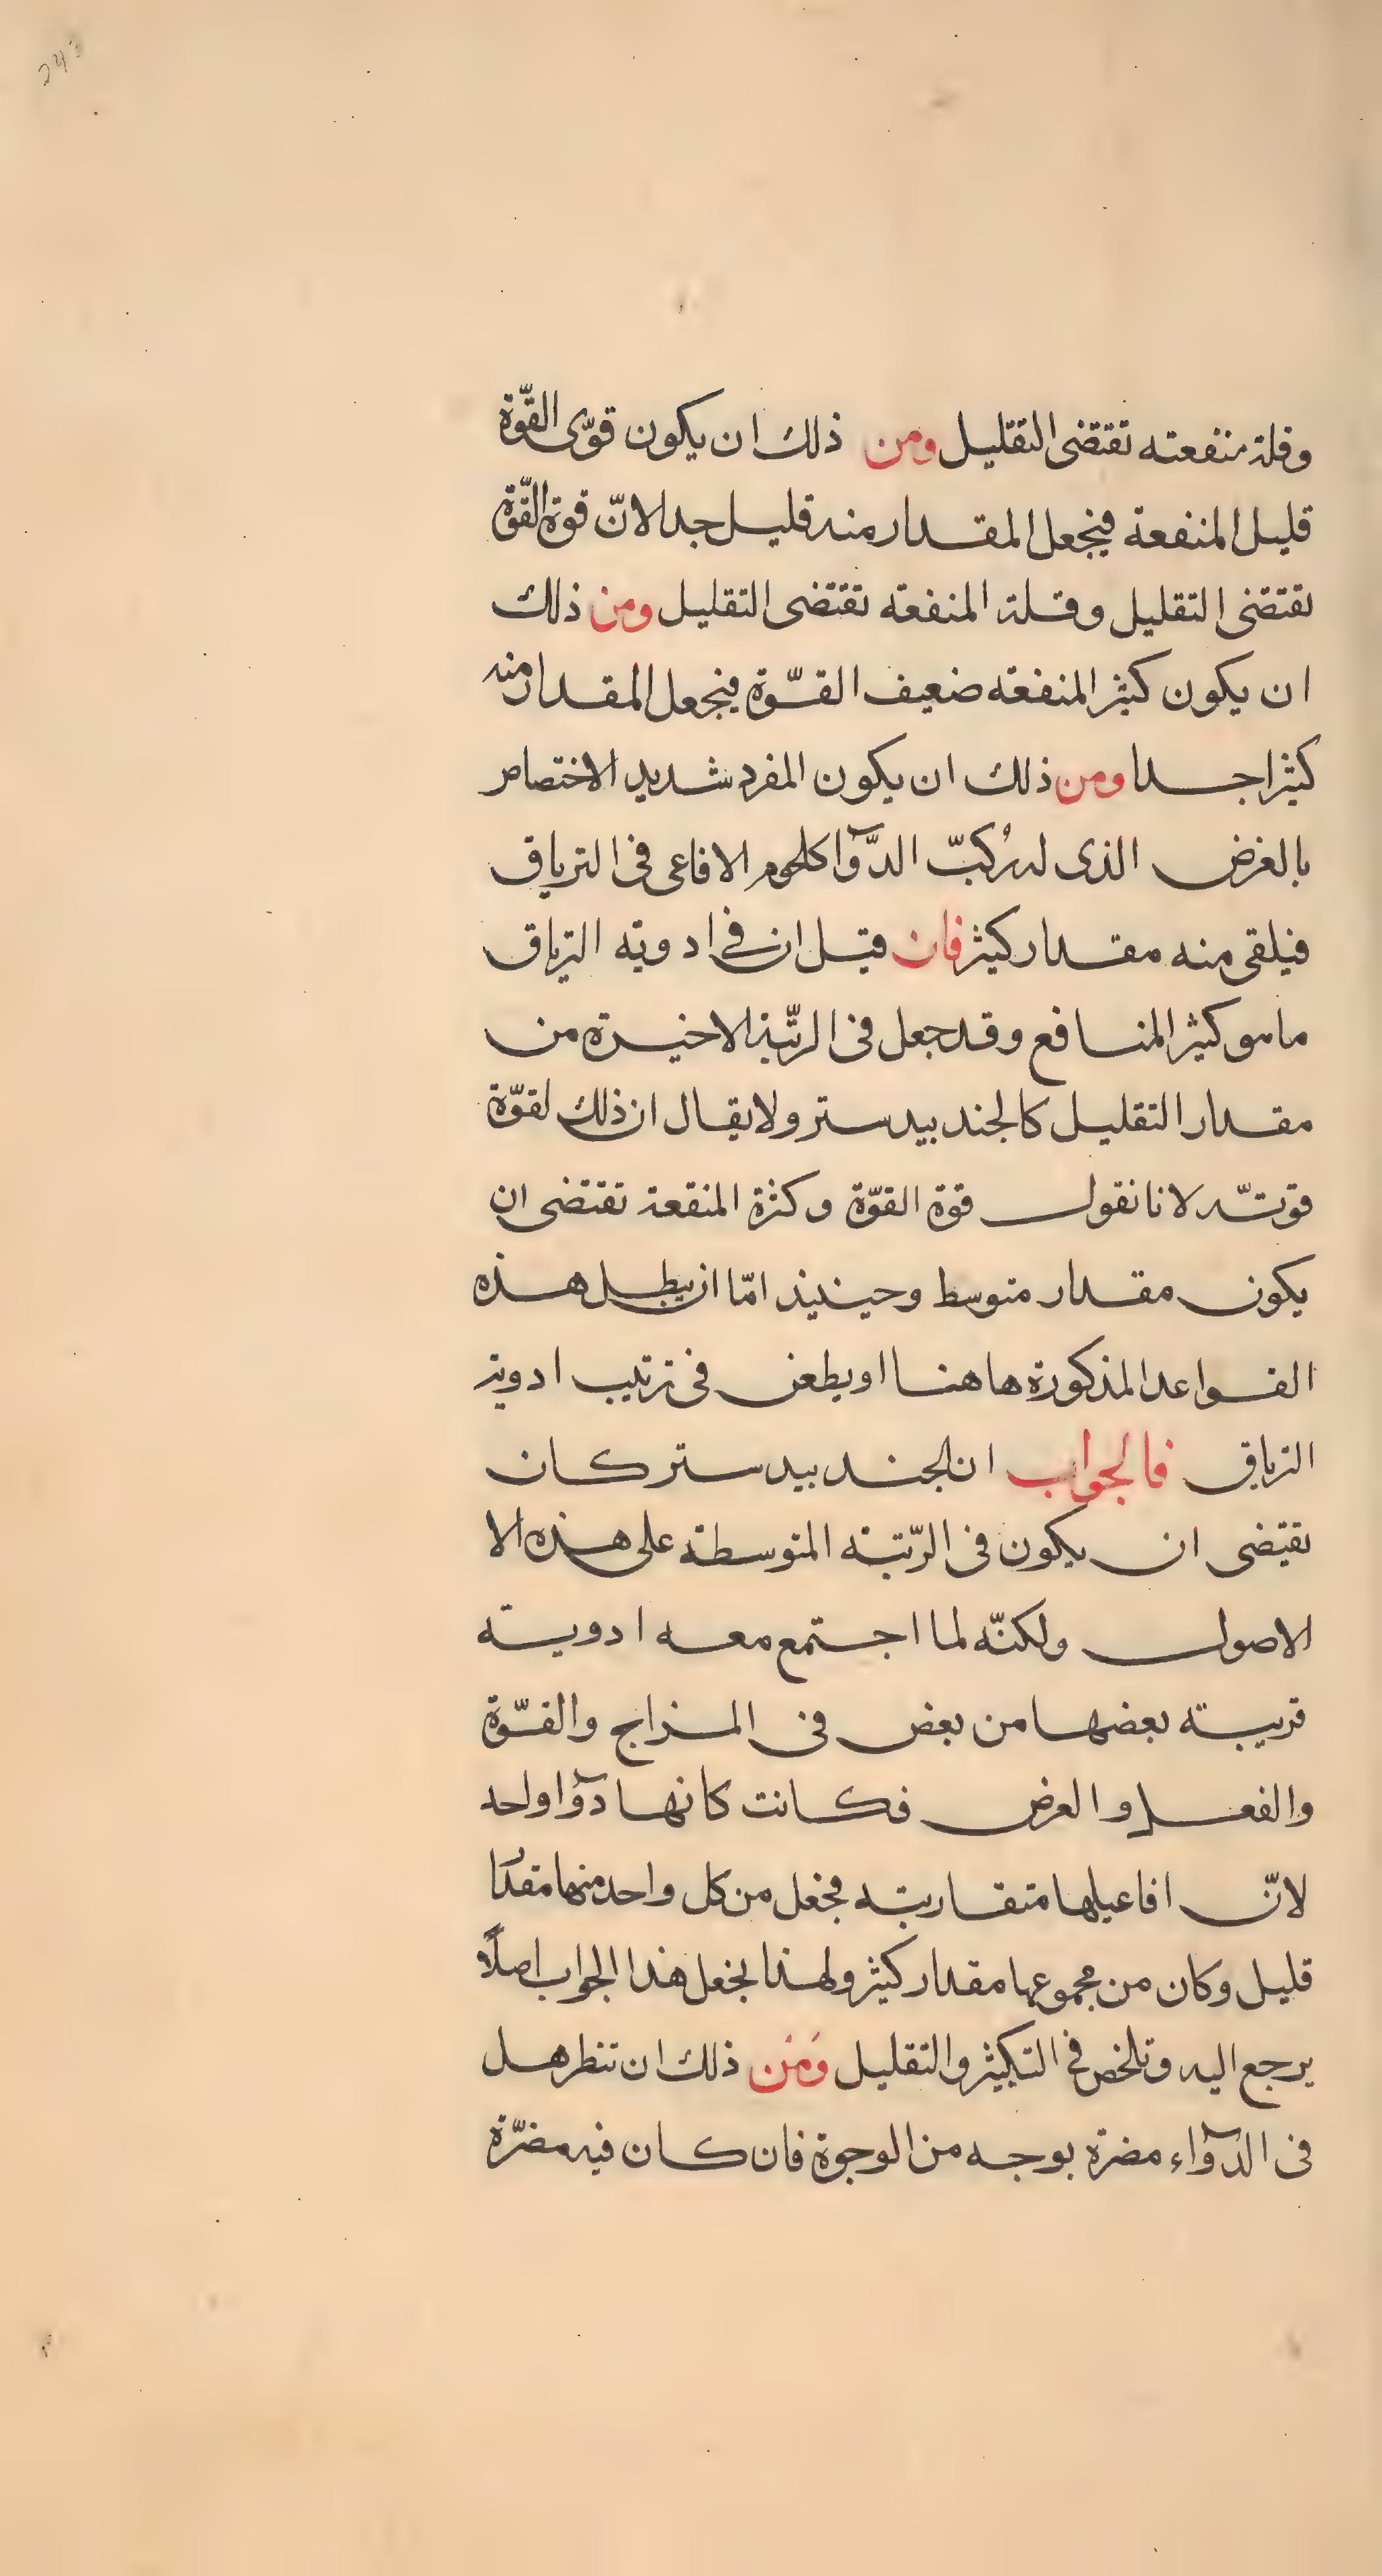 243
وقلة منفعته تقتضى التقليل ومن ذلك ان يكون قوّى القّوة
قليل المنفعة فيجعل المقدار منه قليل جدا لانّ قوة القّوة
تقتضى التقليل وقلة المنفعته تقتضى التقليل ومن ذلك
ان يكون كثير المنفعته ضعيف القّوة فيجعل المقدار منه
كثيرا جدا ومن ذلك ان يكون المفرد شديد الاختصاص
بالغرض الذى له رُكبّ الدّوآ كلحوم الافاعى فى الترياق
فيلقى منه مقدار كثير فان قيل ان فى ادويته الترياق
ما هو كثير المنافع وقد جعل فى الرتّبة الاخيرة من
مقدار التقليل كالجند بيدستر ولا يقال ان ذلك لقوّة
قوتّه لانا نقول قوة القوّة وكثرة المنفعة تقتضى ان
يكون مقدار متوسط وحينيذ امّا ان يبطل هذه
القواعد المذكورة هاهنا او يطعن فى ترتيب ادوية
الترياق فالجواب ان الجند بيدستر كان
تقتضى ان يكون فى الرّتبته المتوسطة على هذه الا
الاصول ولكنّه لما اجتمع معه ادويته
قريبته بعضها من بعض فى المزاج والقّوة
والفعل والعرض فكانت كانها دوآ اولحد
لانّ افاعيلها متقاربته فجعل من كل واحد منها مقدًا
قليل وكان من مجموعها مقدار كثير ولهذا يجعل هذا الجواب اصلاً
يرجع اليه وتلخص فى التكثير والتقليل وَمن ذلك ان تنظر هل
فى الدوآء مضرة بوجه من الوجوة فان كان فيه مضرّة